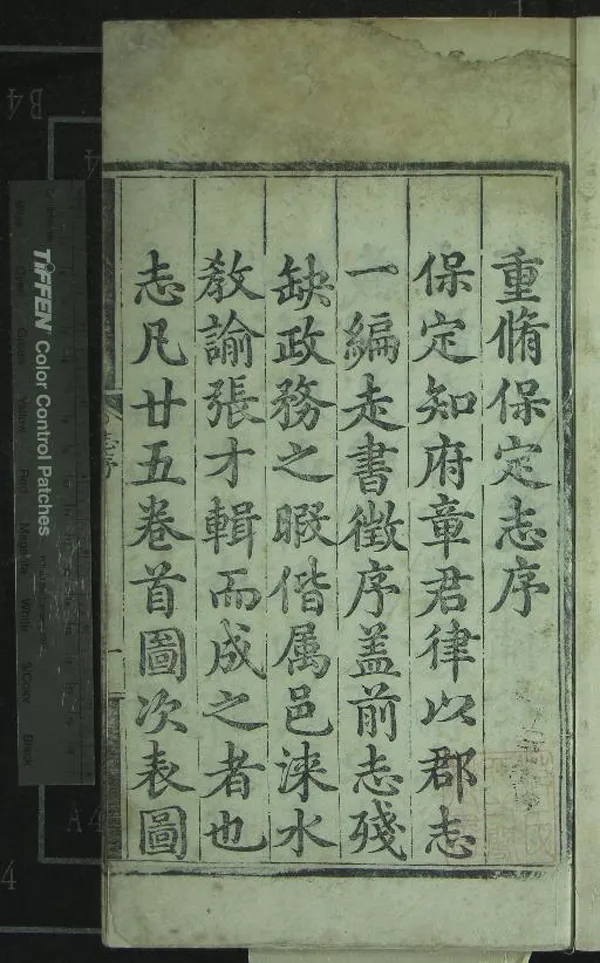 重脩保定志序
保定知府章君律以郡志
一編走書徵序盖前志殘
缺政務之暇偕属邑淶水
教諭張才輯而成之者也
志凡廿五卷首圖次表圖
志序
一
TIFFEN Color Control Patches
B4
A4
4